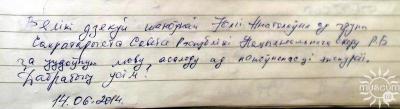 Вялікі дзякуй шаноўнай Юліі Анатольеўне ад групы
Сакратарыята Савета Рэспублікі Нацыянальнага сходу РБ
за цудоўную мову, асалоду ад
Дабрабыту усім!
14.06.2014.
museum.by